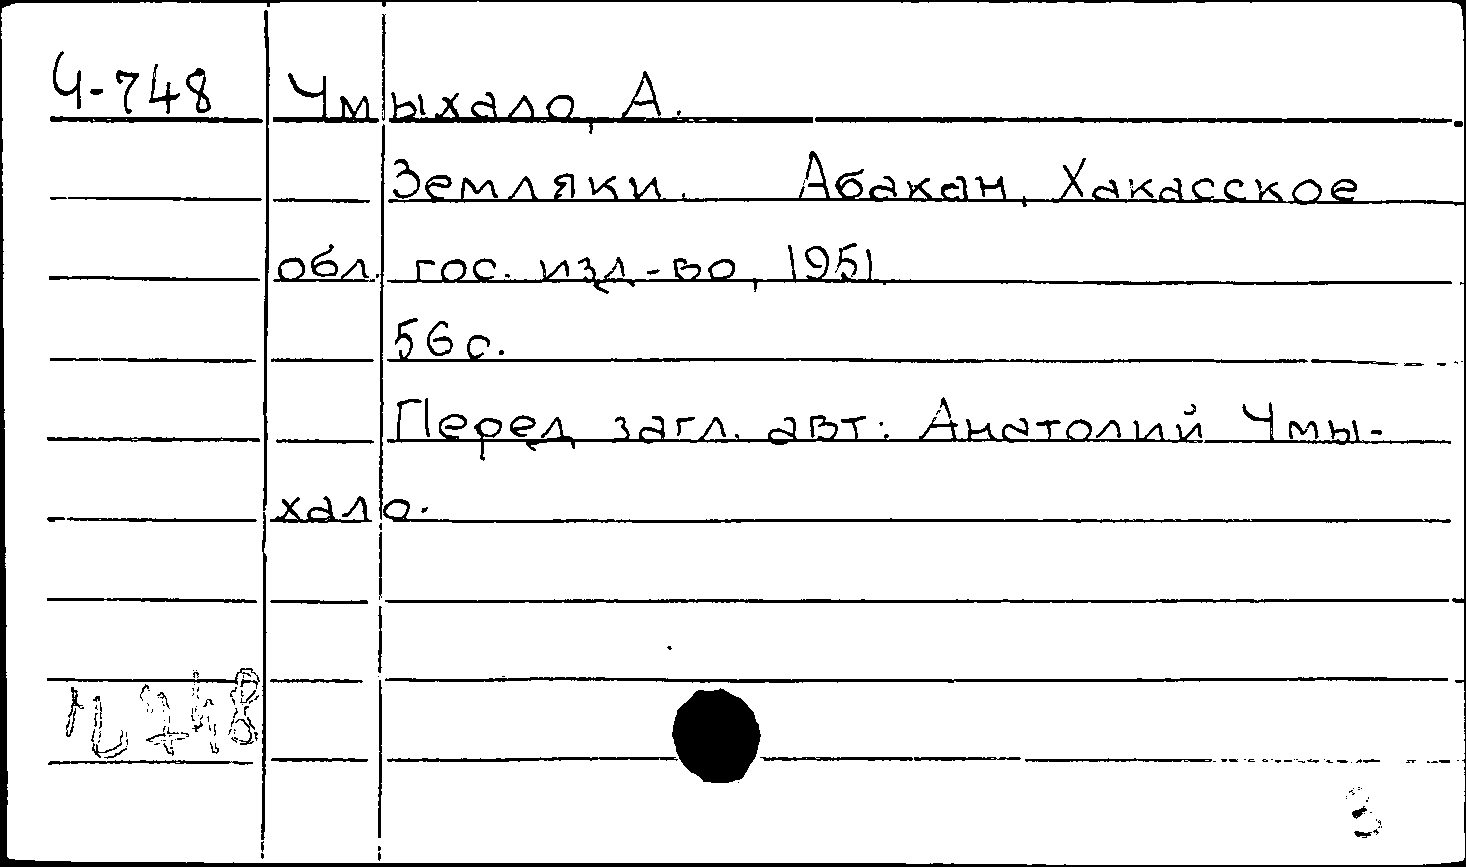 Ч-748 Чмыхало, А.
Земляки. Абакан, Хакасское
обл. гос. изд-во, 1951
56 с.
Перед загл. авт.: Анатолий Чмы-
хало.
748
3